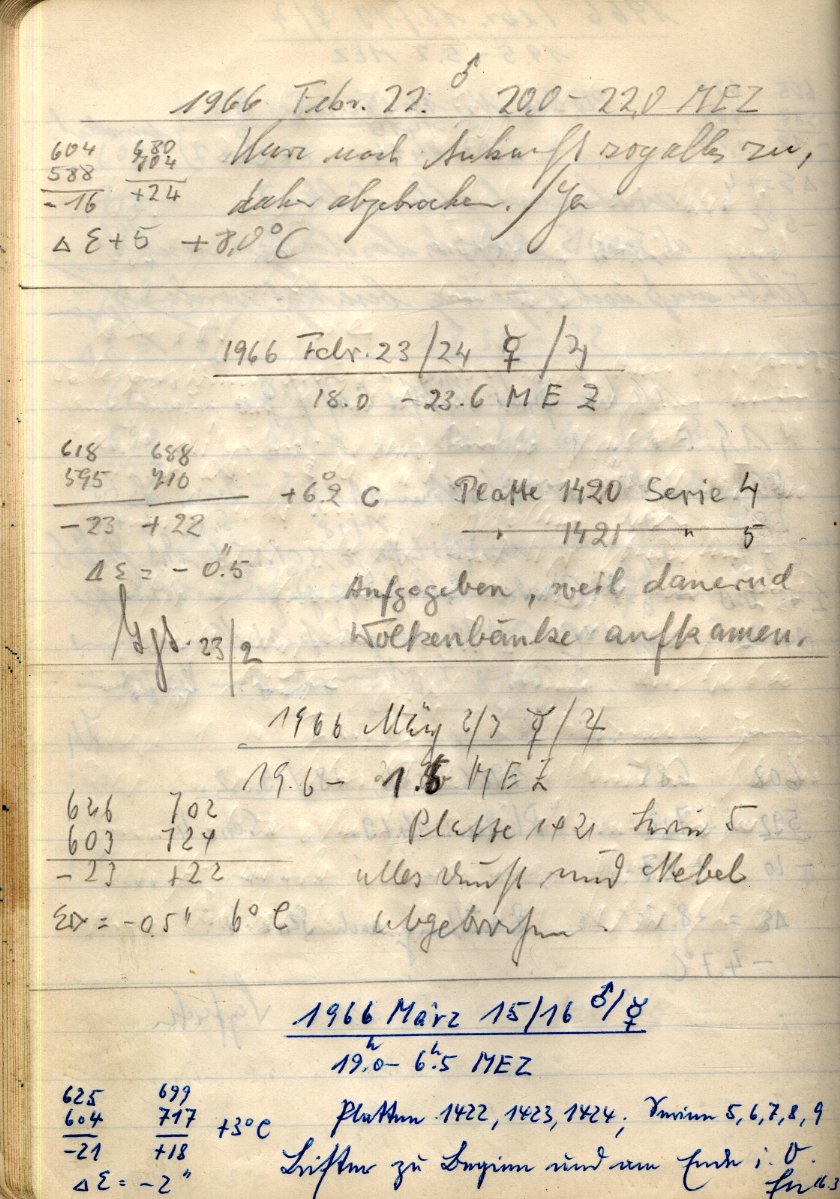 1966 Febr. 22. ♂ 20,0 – 22,0 MEZ
604 680 Kurz nach Ankunft zog alles zu,
588 704
-16 +24 daher abgebrochen. /Ja
Δ Σ + 5 + 8,0° C
1966 Febr. 23/24 ☿ / ♃
18.0 – 23.6 MEZ
618 688
595 710 +6.°2 C Platte 1420 Serie 4
-23 +22 " 1421 " 5
Δ Σ = - 0".5
Aufgegeben, weil dauernd
23/2 Wolkenbänke aufkamen.
1966 März 2/3 ☿ / ♃
19.6 – 1.5 MEZ
626 702
603 724 Platte 1421 Serie 5
-23 +22 alles Dunst und Nebel
ΣΔ = -0.5" 6° C abgebrochen.
1966 März 15/16 ♂/☿
19.ʰ0 – 6.ʰ5 MEZ
625 699
604 717 +3°C Platten 1422, 1423, 1424; Serien 5, 6, 7, 8, 9
-21 +18 zu Beginn und am Ende i. O.
Δ Σ = -2"